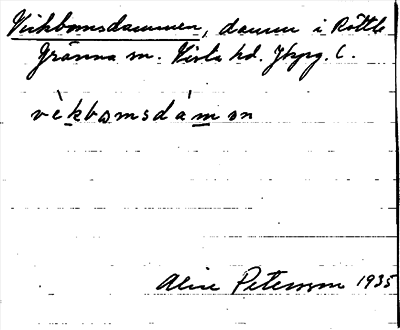 Vickbomsdammen, damm i Röttle
Gränna sn. Vista hd. Jkpg. l.
vèkbomsdámən
Alice Peterson 1935